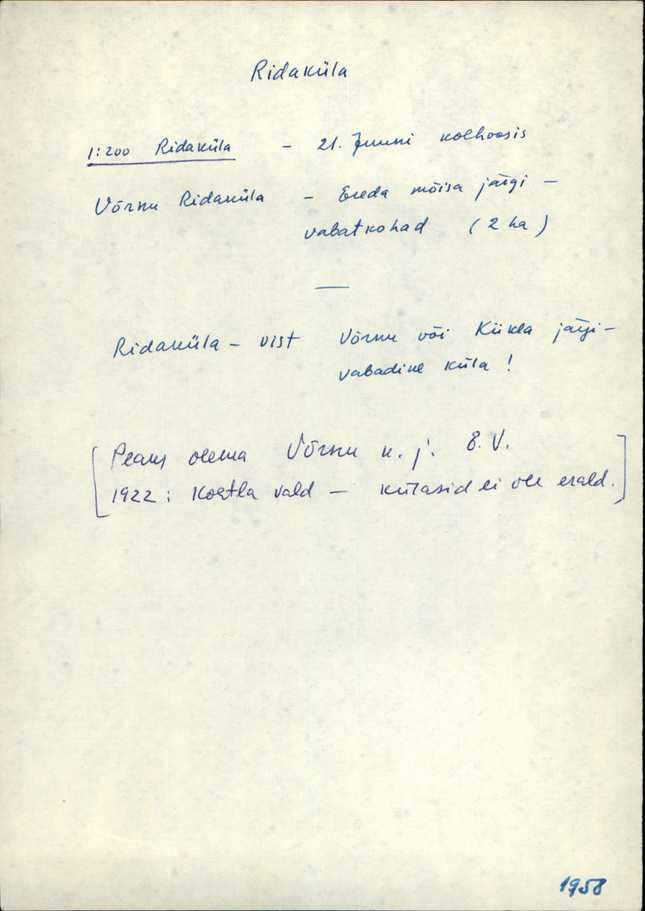 Ridaküla
1:200 Ridaküla - 21. Juuni kolhoosis
Võrnu Ridaküla - Ereda mõisa järgi -
vabatkohad (2 ha)
—
Ridaküla - vist Võrnu või Kiikla järgi-
vabadike küla!
[Peaks olema Võrnu k. j. 8. V.
1922: Koetla vald - külasid ei ole erald.]
1958